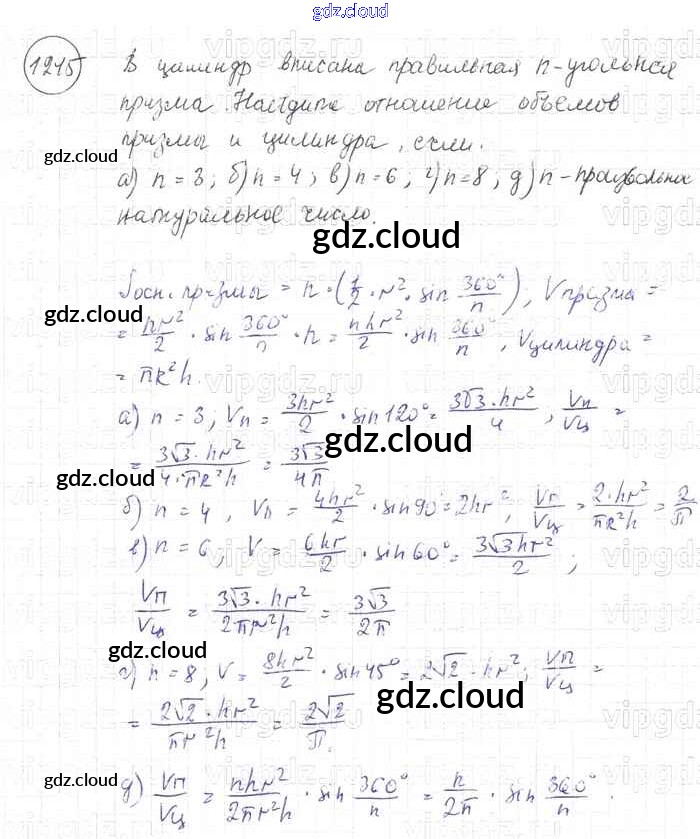 gdz.cloud
1215 В цилиндр вписана правильная n-угольная
призма. Найдите отношение объемов
призмы и цилиндра, если:
gdz.cloud
а) n = 3; б) n = 4; в) n = 6; г) n = 8; д) n - произвольное
натуральное число.
gdz.cloud
Sосн. призмы = n·(1/2·r²·sin 360°/n), Vпризма =
gdz.cloud
= hr²/2 · sin 360°/n · n = nhr²/2 · sin 360°/n, Vцилиндра =
= πR²h.
а) n = 3; Vп = 3hr²/2 · sin120° = 3√3·hr²/4, Vп/Vц =
gdz.cloud
= 3√3·hr²/4·πR²h = 3√3/4π
gdz.cloud
б) n = 4, Vп = 4hr²/2 · sin90° = 2hr², Vп/Vц = 2·hr²/πR²h = 2/π
в) n = 6, V = 6hr/2 · sin60° = 3√3hr²/2;
Vп/Vц = 3√3·hr²/2πr²h = 3√3/2π
gdz.cloud
г) n = 8; V = 8hr²/2 · sin45° = 2√2·hr²; Vп/Vц =
gdz.cloud
= 2√2·hr²/πr²h = 2√2/π.
gdz.cloud
д) Vп/Vц = nhr²/2πr²h · sin 360°/n = n/2π · sin 360°/n.
gdz.cloud